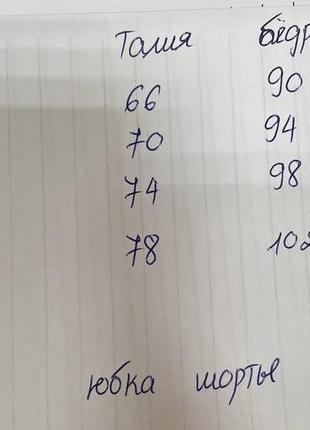 Талия бёдр
66 90
70 94
74 98
78 102
юбка шорты